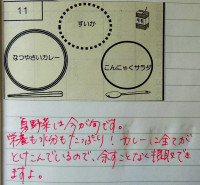 11
すいか
なつやさいカレー
こんにゃくサラダ
夏野菜は今が旬です。
栄養も水分もたっぷり！カレーに全てが
とけこんでいるので、余すことなく摂取でき
ますよ。